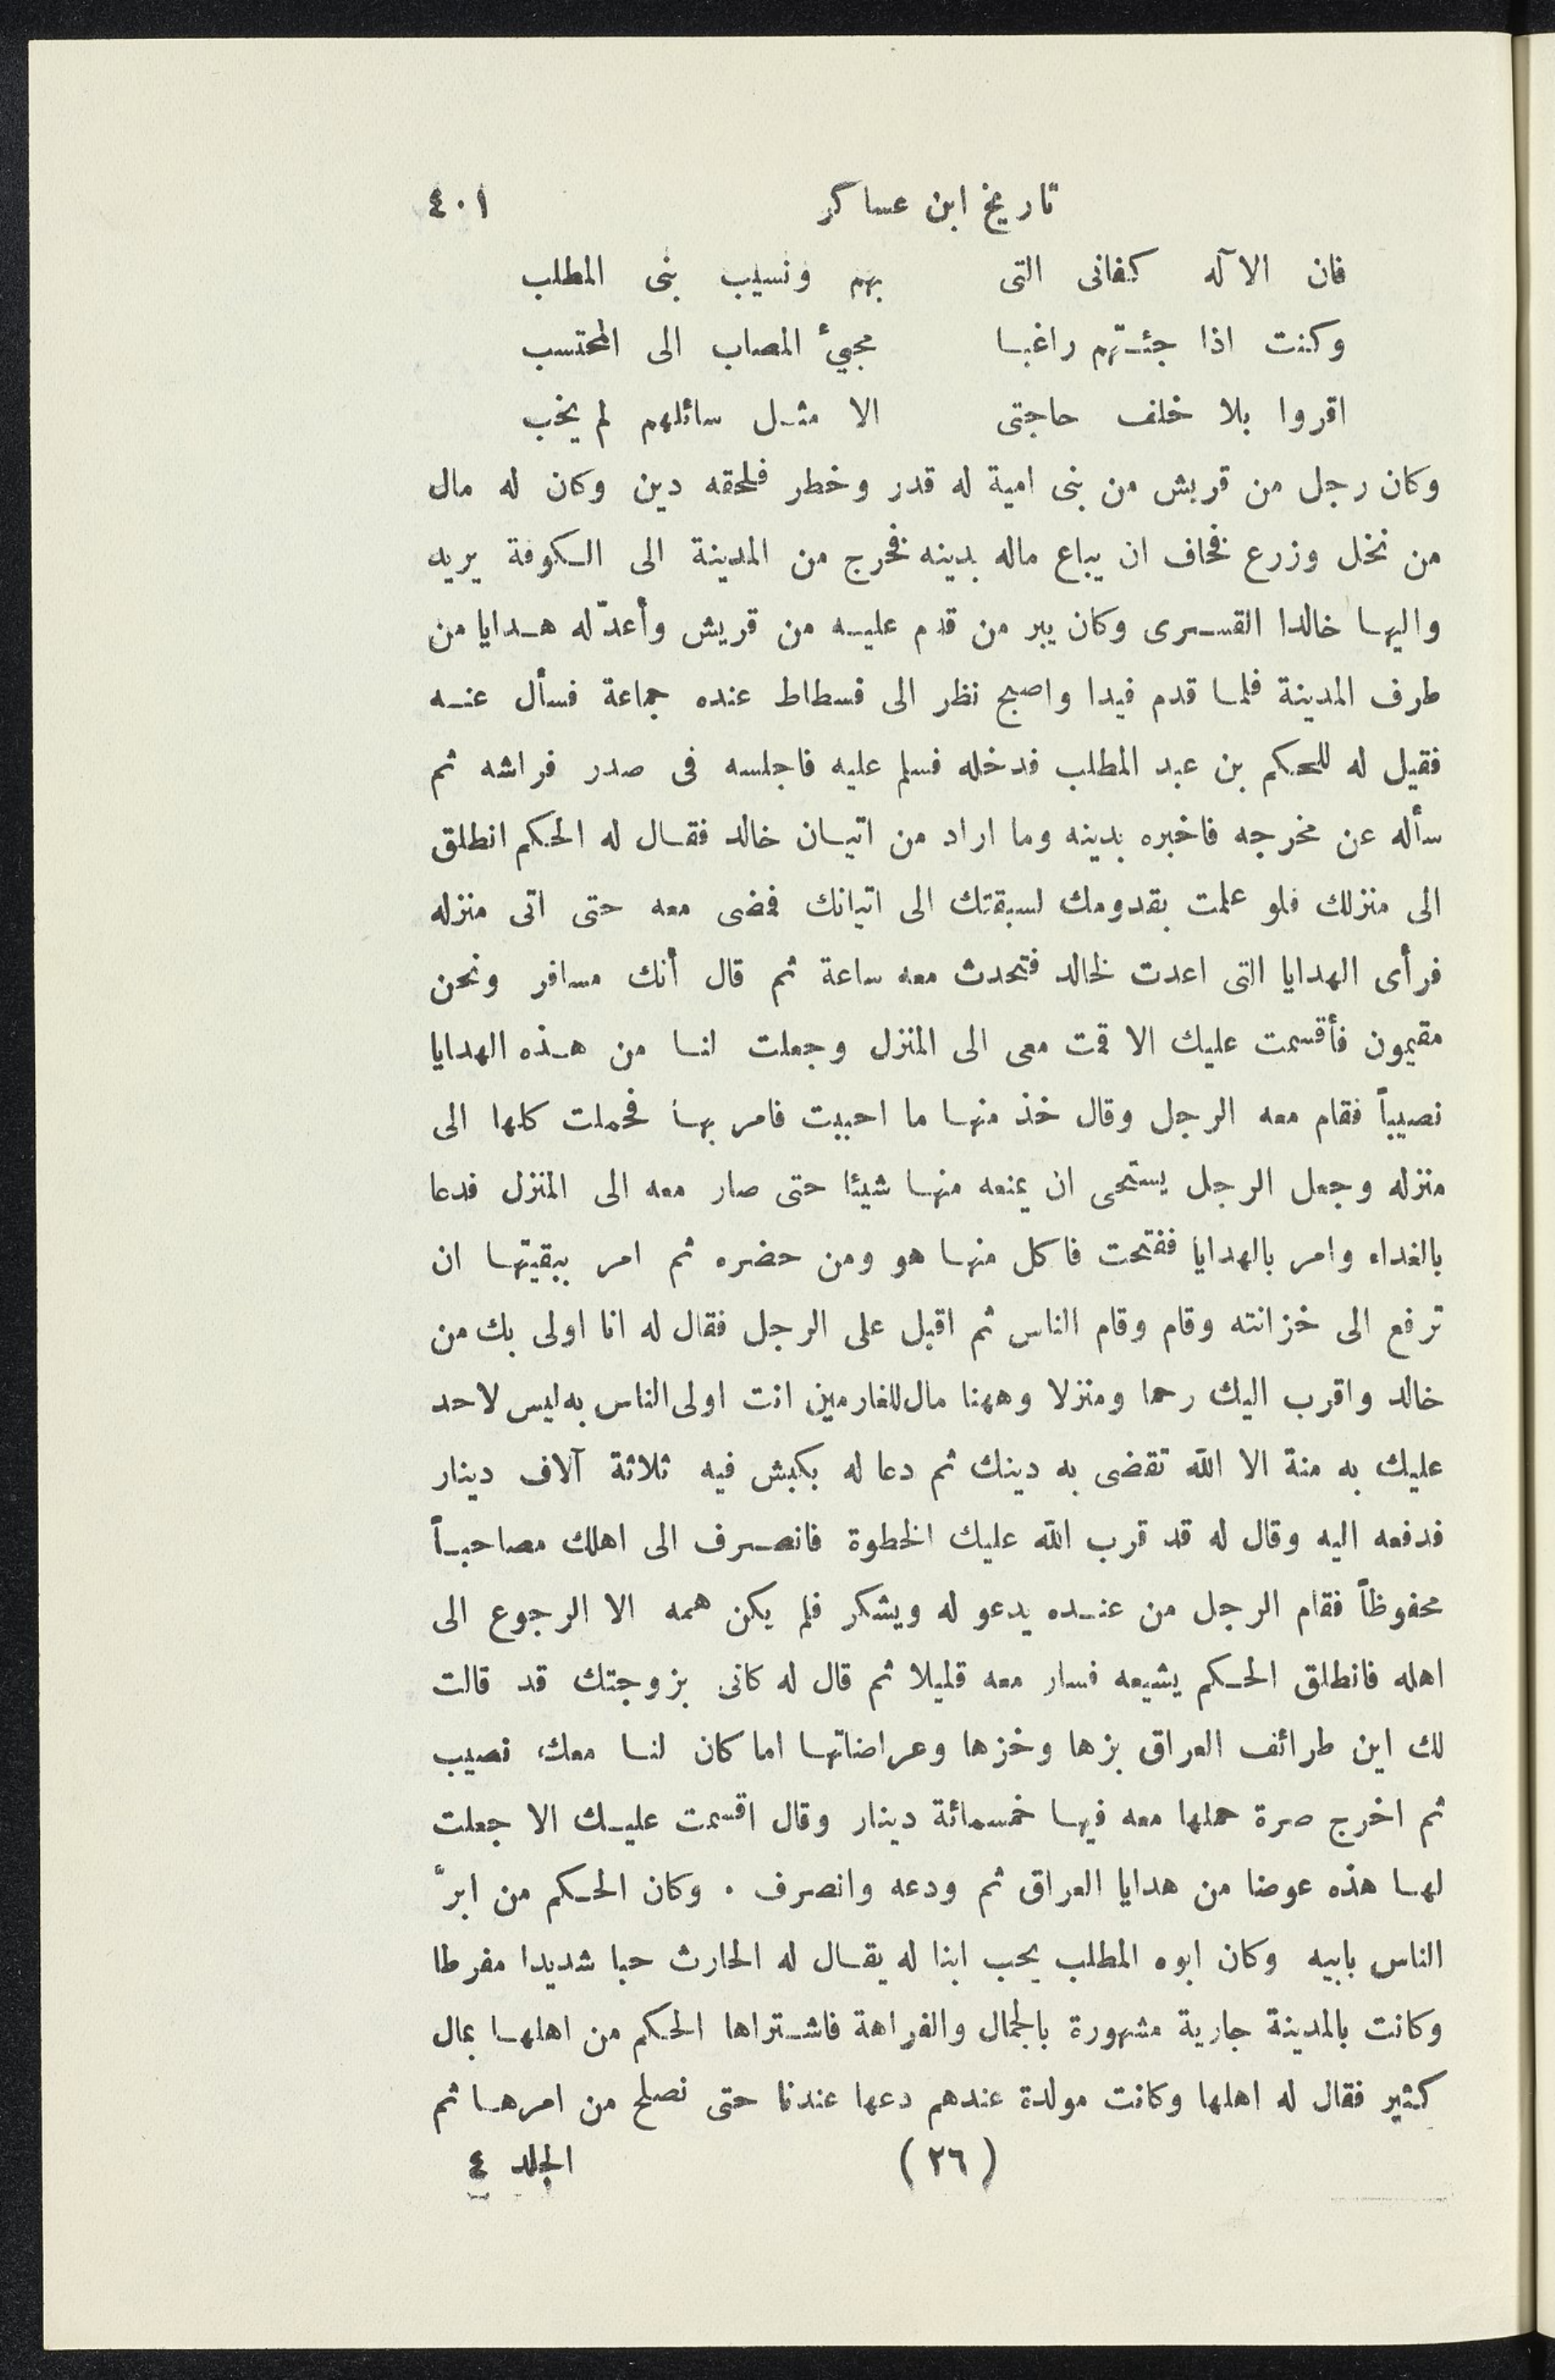 تاريخ ابن عساكر ٤٠١
فان الآله كفانى التى بهم ونسيب بنى المطلب
وكنت اذا جئتهم راغبا مجيئ المصاب الى المحتسب
اقروا بلا خلف حاجتى الا مثل سائلهم لم يخب
وكان رجل من قريش من بنى امية له قدر وخطر فلحقه دين وكان له مال
من نخل وزرع فخاف ان يباع ماله بدينه فخرج من المدينة الى الكوفة يريد
واليها خالدا القسرى وكان يبر من قدم عليه من قريش وأعدّ له هدايا من
طرف المدينة فلما قدم فيدا واصبح نظر الى فسطاط عنده جماعة فسأل عنه
فقيل له للحكم بن عبد المطلب فدخله فسلم عليه فاجلسه فى صدر فراشه ثم
سأله عن مخرجه فاخبره بدينه وما اراد من اتيان خالد فقال له الحكم انطلق
الى منزلك فلو علمت بقدومك لسبقتك الى اتيانك فمضى معه حتى اتى منزله
فرأى الهدايا التى اعدت لخالد فتحدث معه ساعة ثم قال أنك مسافر ونحن
مقيمون فأقسمت عليك الا قمت معى الى المنزل وجعلت لنا من هذه الهدايا
نصيباً فقام معه الرجل وقال خذ منها ما احببت فامر بها فحملت كلها الى
منزله وجعل الرجل يستحى ان يمنعه منها شيئا حتى صار معه الى المنزل فدعا
بالغداء وامر بالهدايا ففتحت فاكل منها هو ومن حضره ثم امر ببقيتها ان
ترفع الى خزانته وقام وقام الناس ثم اقبل على الرجل فقال له انا اولى بك من
خالد واقرب اليك رحما ومنزلا وههنا مال للغارمين انت اولى الناس به ليس لاحد
عليك به منة الا الله تقضى به دينك ثم دعا له بكبش فيه ثلاثة آلاف دينار
فدفعه اليه وقال له قد قرب الله عليك الخطوة فانصرف الى اهلك مصاحباً
محفوظاً فقام الرجل من عنده يدعو له ويشكر فلم يكن همه الا الرجوع الى
اهله فانطلق الحكم يشيعه فسار معه قليلا ثم قال له كانى بزوجتك قد قالت
لك اين طرائف العراق بزها وخزها وعراضاتها اما كان لنا معك نصيب
ثم اخرج صرة حملها معه فيها خمسمائة دينار وقال اقسمت عليك الا جعلت
لها هذه عوضا من هدايا العراق ثم ودعه وانصرف . وكان الحكم من ابرّ
الناس بابيه وكان ابوه المطلب يحب ابنا له يقال له الحارث حبا شديدا مفرطا
وكانت بالمدينة جارية مشهورة بالجمال والفراهة فاشتراها الحكم من اهلها بمال
كثير فقال له اهلها وكانت مولدة عندهم دعها عندنا حتى نصلح من امرها ثم
(٢٦) الجلد ٤